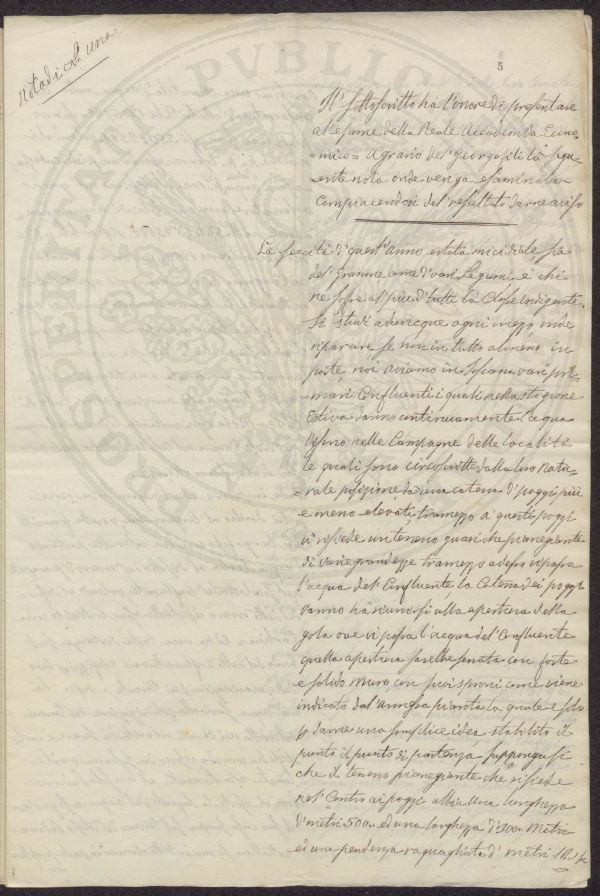 nota di No una
5
Il sottoscritto ha l'onore di presentare
all'esame della Reale Accademia Econo
=mico= Agrario dei Georgofili la segu
=ente nota onde venga esaminata
Compiacendosi del resultato darne aviso
La siccità di quest'Anno estata micidiale sia
del Granone come di vari Legumi, e chi
ne sofre al più di tutti la Classe indigente.
Si studi adunque ogni mezzo onde
riparare se non in tutto almeno in
parte, noi aviamo in Toscana vari pri
=mari Confluenti i quali nella stagione
Estiva danno continuamente l'acqua
Vi sono nelle Campagne delle località
le quali sono circoscritte dalla loro Natu
=rale posizione da una catena di poggi più
e meno elevati, tramezzo a questi poggi
vi resiede un terreno quasi che pianegiante
di varie grandezze tramezzo adesso vi passa
l'acqua del Confluente, la Catena dei poggi
vanno ha riunirsi alla apertura della
gola ove vi passa l'acqua del Confluente
quella apertura sarebbe serrata con forte
e solido Muro, con suoi sproni come viene
indicato dal'annessa pianta la quale è solo
p darne una semplice idea stabilito il
punto il punto di partenza, suppongasi
che il terreno pianegiante che risiede
nel Centro ai poggi abbia una lunghezza
di metri 500 ed una larghezza di 300 Metri
ed una pendenza raguagliata di metri 12.1/2